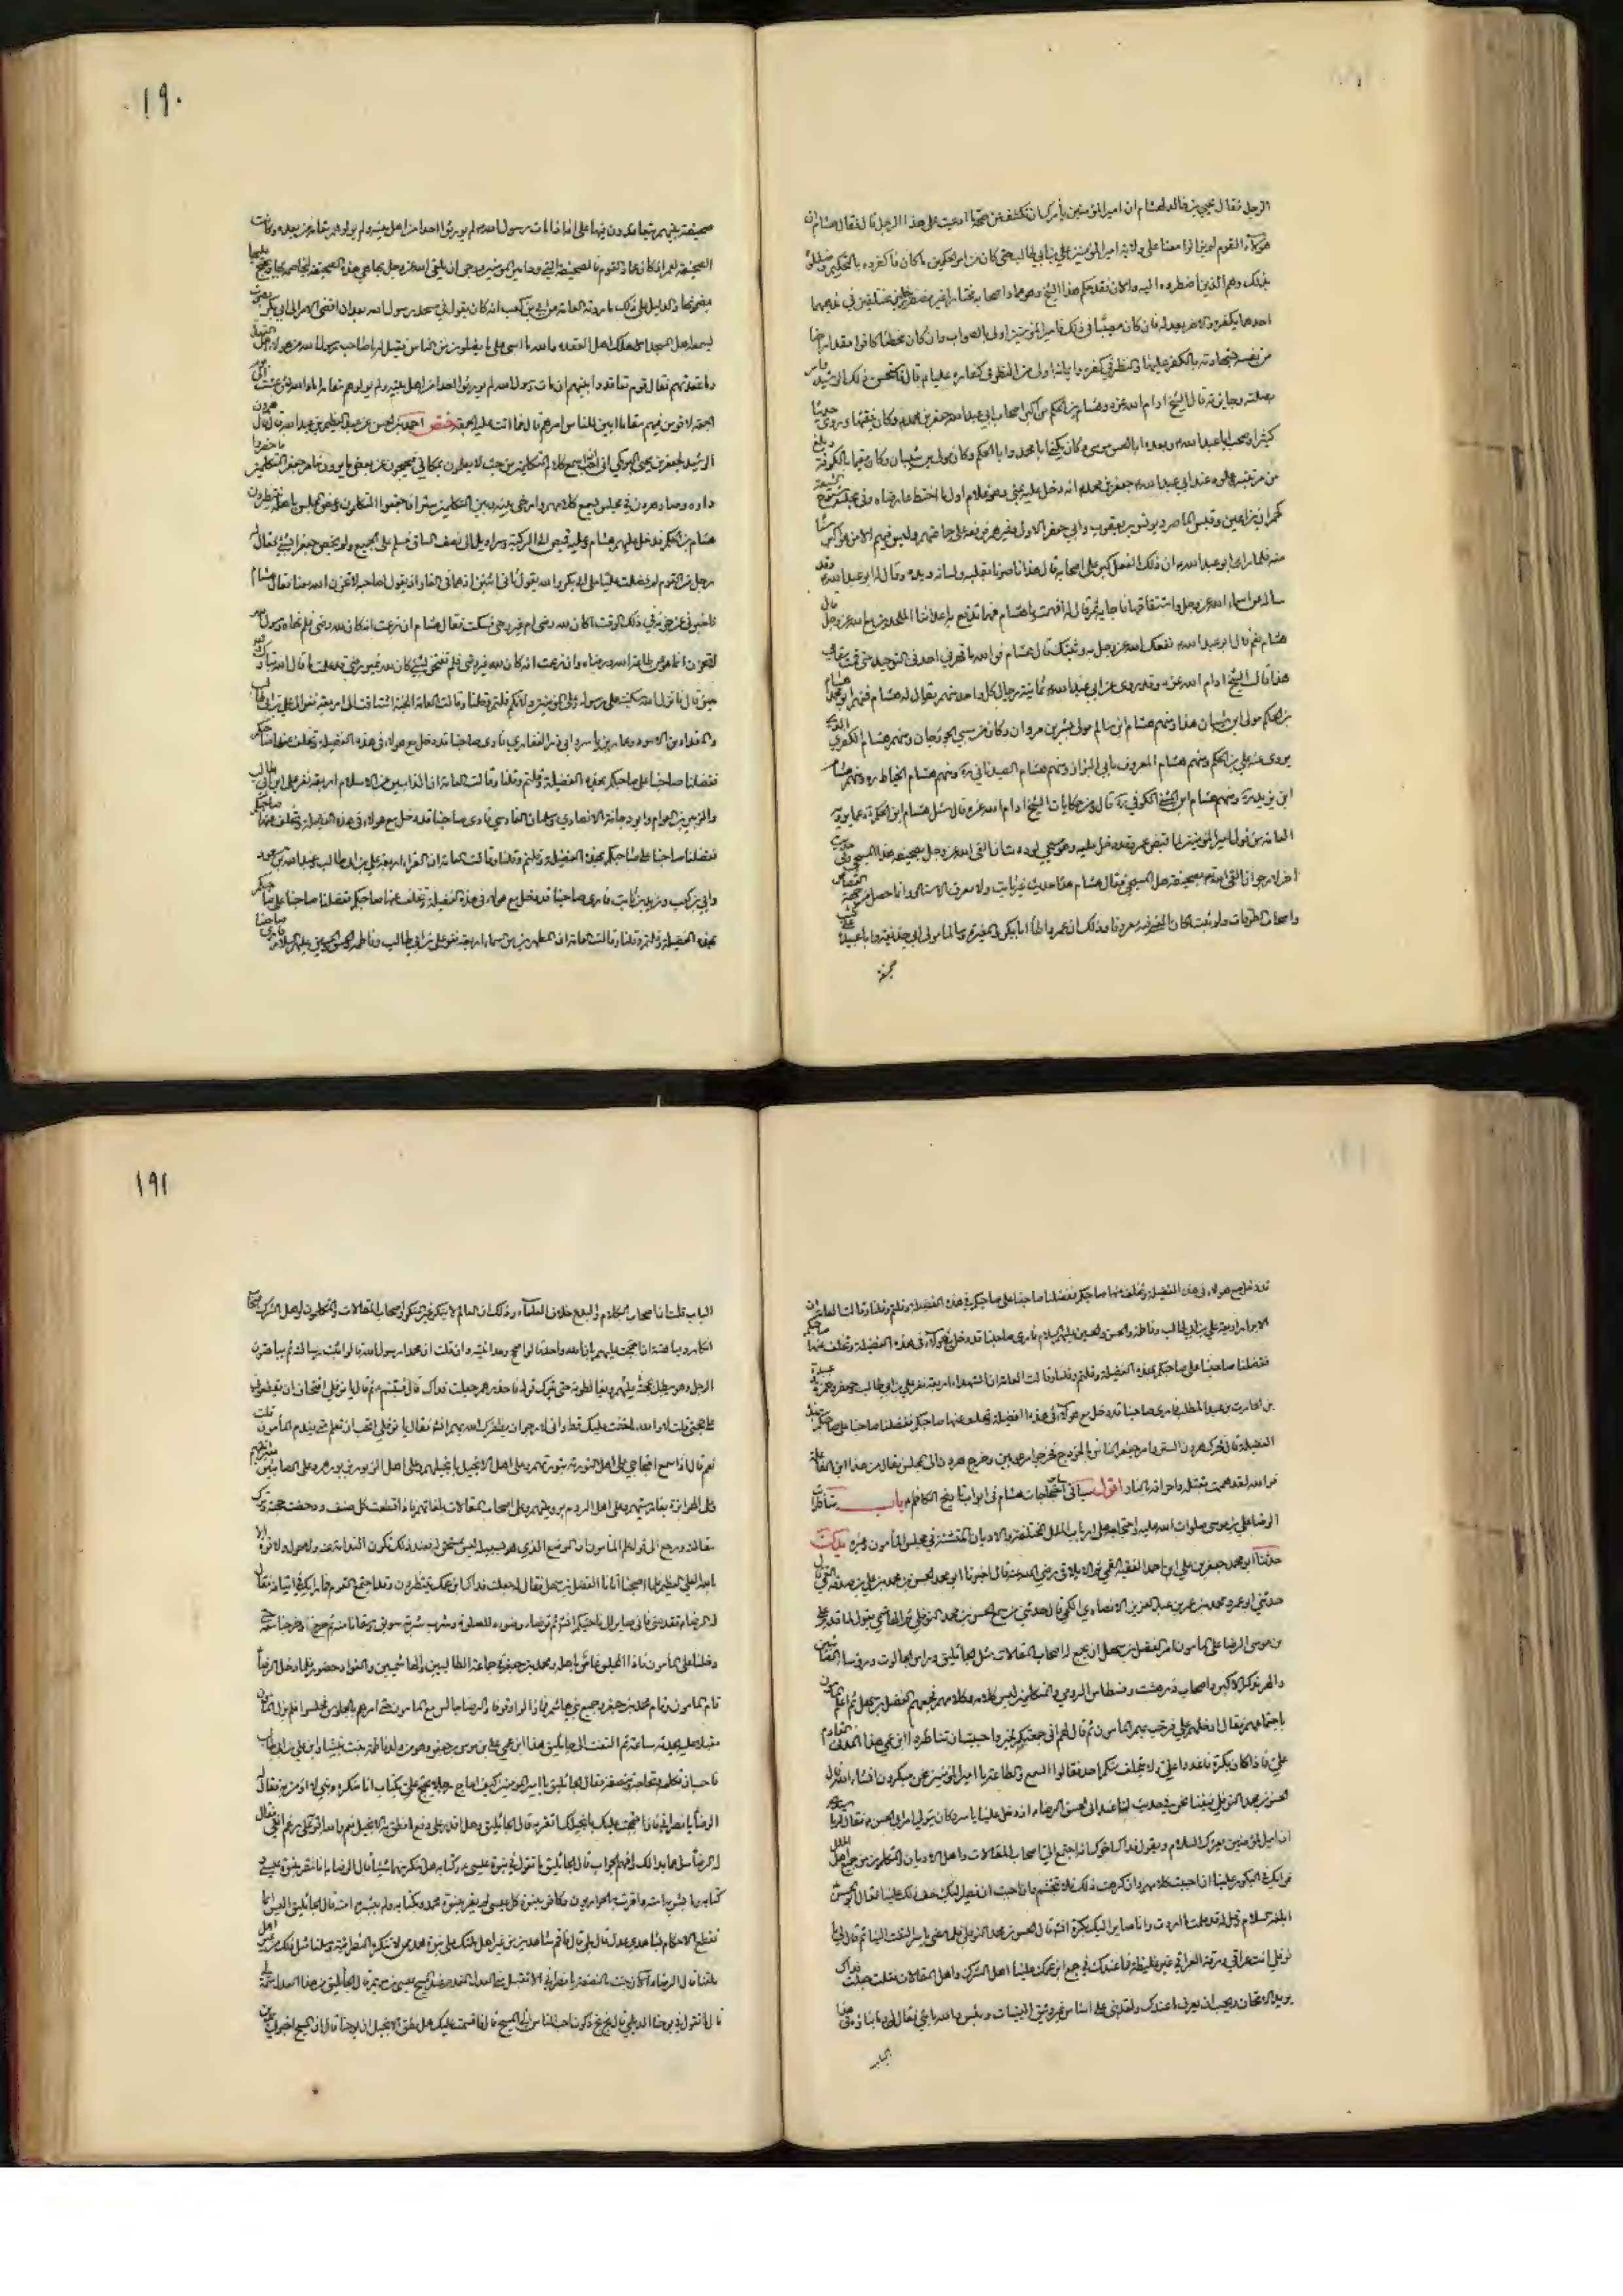 الرجل فقال يحيى بن خالد لهشام ان امير المؤمنين يأمرك ان تكشف عن صحة ما ادعيت على هذا الرجل قال فقال هشام ان
هؤلاء القوم لم يزالوا معنا على ولاية امير المؤمنين علي بن ابي طالب حتى كان من امر الحكمين ما كان فاكفروه بالتحكيم وضللوه
بذلك وهم الذين اضطروه اليه والان فقد حكم هذا الشيخ وهو عماد اصحابه مختارا غير مضطر رجلين مختلفين في مذهبهما
احدهما يكفره والاخر يعدله فان كان مصيبا في ذلك فامير المؤمنين اولى بالصواب وان كان مخطئا كافرا فقد اراحنا
من نفسه بشهادته بالكفر عليها والنظر في كفره وايمانه اولى من النظر في اكفاره عليا م قال فاستحسن ذلك الرشيد وامر
بصلته وجايزته قال الشيخ ادام الله عزه وهشام بن الحكم من اكبر اصحاب ابي عبد الله جعفر بن محمد م وكان فقيها وروى حديثا
كثيرا وصحب ابا عبد الله م وبعده ابا الحسن موسى م وكان يكنى ابا محمد وابا الحكم وكان مولى بني شيبان وكان مقيما بالكوفة وبلغ
من مرتبته وعلوه عند ابي عبد الله جعفر بن محمد م انه دخل عليه بمنى وهو غلام اول ما اختط عارضاه وفي مجلسه شيوخ الشيعة
كحمران بن اعين وقيس الماصر ويونس بن يعقوب وابي جعفر الاحول وغيرهم فرفعه على جماعتهم وليس فيهم الا من هو اكبر سنا
منه فلما راى ابو عبد الله م ان ذلك الفعل كبر على اصحابه قال هذا ناصرنا بقلبه ولسانه ويده وقال له ابو عبد الله م وقد
ساله عن اسماء الله عز وجل واشتقاقها فاجابه ثم قال له افهمت يا هشام فهما تدفع به اعداءنا الملحدين مع الله عز وجل قال
هشام نعم قال ابو عبد الله م نفعك الله عز وجل به وثبتك قال هشام فوالله ما قهرني احد في التوحيد حتى قمت مقامي
هذا قال الشيخ ادام الله عزه وقد روى عن ابي عبد الله م ثمانية رجال كل واحد منهم يقال له هشام فمنهم ابو محمد هشام
بن الحكم مولى بني شيبان هذا ومنهم هشام بن سالم مولى بشر بن مروان وكان من سبي الجوزجان ومنهم هشام الكفري الذي
يروى عنه علي بن الحكم ومنهم هشام المعروف بابي البزاز ومنهم هشام الصيدناني ره ومنهم هشام الخياط ره ومنهم هشام
ابن يزيد ره ومنهم هشام ابن المثنى الكوفي ره قال ومن حكايات الشيخ ادام الله عزه قال سئل هشام ابن الحكم ره عما يرويه
العامة من قول امير المؤمنين لما قبض عمر وقد دخل عليه وهو مسجى لوددت ان القى الله عز وجل بصحيفة هذا المسجى وفي حديث
اخر اني لارجو ان القى الله م بصحيفة هذا المسجى فقال هشام هذا حديث غير ثابت ولا معروف الاسناد وانما حصل من جهة القصاص
واصحاب الطرقات ولو ثبت لكان المعنى فيه معروفا وذلك ان عمر واطأ ابا بكر والمغيرة وسالما مولى ابي حذيفة وابا عبيدة على كتب
صحيفة
١٩٠
صحيفة بينهم يتعاقدون فيها على انه اذا مات رسول الله م لم يورثوا احدا من اهل بيته ولم يولوهم مقامه من بعده وكانت
الصحيفة لعمر اذ كان عماد القوم فالصحيفة التي ود امير المؤمنين ورجى ان يلقى الله عز وجل بها هي هذه الصحيفة ليخاصمه بها ويحتج عليه
بمضمونها والدليل على ذلك ما روته العامة عن ابي بن كعب انه كان يقول في مسجد رسول الله م بعد ان افضى الامر الى ابي بكر بصوت
يسمعه اهل المسجد الا هلك اهل العقدة والله ما اسى عليهم انما اسى على من يضلون من الناس فقيل له يا صاحب رسول الله من هؤلاء اهل العقدة
وما عقدتهم فقال قوم تعاقدوا بينهم ان مات رسول الله لم يورثوا احدا من اهل بيته ولم يولوهم مقامه اما والله لئن عشت الى يوم
الجمعة لاقومن فيهم مقاما ابين للناس امرهم قال فما اتت عليه الجمعة ختص احمد بن الحسن عن عبد العظيم بن عبد الله قال قال هرون
الرشيد لجعفر بن يحيى البرمكي اني احب ان اسمع كلام المتكلمين من حيث لا يعلمون بمكاني فيحتجون عن بعض ما يريدون فامر جعفر المتكلمين فاحضروا
داره وصار هرون في مجلس يسمع كلامهم وارخى بينه وبين المتكلمين سترا فاجتمعوا المتكلمون وغص المجلس باهله ينتظرون
هشام بن الحكم فدخل عليهم هشام وعليه قميص الى الركبة وسراويل الى نصف الساق فسلم على الجميع ولم يخص جعفرا بشيء فقال له
رجل من القوم لم فضلت عليا على ابي بكر والله يقول ثاني اثنين اذ هما في الغار اذ يقول لصاحبه لا تحزن ان الله معنا فقال هشام
فاخبرني عن حزنه في ذلك الوقت اكان لله رضى ام غير رضى فسكت فقال هشام ان زعمت انه كان لله رضى فلم نهاه رسول الله
والمقداد بن الاسود وعمار بن ياسر وابي ذر الغفاري فارى صاحبنا قد دخل مع هؤلاء في هذه الفضيلة وتخلف عنها صاحبكم
ففضلنا صاحبنا على صاحبكم بهذه الفضيلة وقلتم وقلنا وقالت العامة ان الذابين عن الاسلام اربعة نفر علي بن ابي طالب
والزبير بن العوام وابو دجانة الانصاري وسلمان الفارسي فارى صاحبنا قد دخل مع هؤلاء في هذه الفضيلة وتخلف عنها صاحبكم
ففضلنا صاحبنا على صاحبكم بهذه الفضيلة وقلتم وقلنا وقالت العامة ان القراء اربعة علي بن ابي طالب وعبد الله بن مسعود
وابي بن كعب وزيد بن ثابت فارى صاحبنا قد دخل مع هؤلاء في هذه الفضيلة وتخلف عنها صاحبكم ففضلنا صاحبنا على صاحبكم
بهذه الفضيلة وقلتم وقلنا وقالت العامة ان المطهرين من السماء اربعة نفر علي بن ابي طالب وفاطمة والحسن والحسين عليهم السلام فارى صاحبنا
قد دخل مع هؤلاء في هذه الفضيلة وتخلف عنها صاحبكم ففضلنا صاحبنا على صاحبكم في هذه الفضيلة وقلتم وقلنا وقالت العامة ان
الابرار اربعة علي بن ابي طالب وفاطمة والحسن والحسين عليهم السلام فارى صاحبنا قد دخل مع هؤلاء في هذه الفضيلة وتخلف عنها صاحبكم
ففضلنا صاحبنا على صاحبكم بهذه الفضيلة وقلتم وقلنا وقالت العامة ان الشهداء اربعة نفر علي بن ابي طالب وجعفر وحمزة وعبيدة
بن الحارث بن عبد المطلب فارى صاحبنا قد دخل مع هؤلاء في هذه الفضيلة وتخلف عنها صاحبكم ففضلنا صاحبنا على صاحبكم بهذه
الفضيلة قال فحرك هرون الستر وامر جعفر الناس بالخروج فخرجوا مرعوبين وخرج هرون الى المجلس فقال من هذا ابن الفاعلة
فوالله لقد هممت بقتله واحراقه بالنار اقول سياتي احتجاجات هشام في ابواب تاريخ الكاظم م باب مناظرات
الرضا علي بن موسى صلوات الله عليه واحتجاجه على ارباب الملل المختلفة والاديان المتشتتة في مجلس المأمون وغيره
حدثنا ابو محمد جعفر بن علي بن احمد الفقيه القمي ثم الايلاقي رضي الله عنه قال اخبرنا ابو محمد الحسن بن محمد بن علي بن صدقة القمي قال
حدثني ابو عمرو محمد بن عمر بن عبد العزيز الانصاري الكجي قال حدثني من سمع الحسن بن محمد النوفلي ثم الهاشمي يقول لما قدم علي
بن موسى الرضا على المأمون امر الفضل بن سهل ان يجمع له اصحاب المقالات مثل الجاثليق وراس الجالوت ورؤسا الصابئين
والهربذ الاكبر واصحاب زرهشت ونسطاس الرومي والمتكلمين ليسمع كلامه وكلامهم فجمعهم الفضل بن سهل ثم اعلم المأمون
باجتماعهم فقال ادخلهم علي ففعل فرحب بهم المأمون ثم قال لهم اني جمعتكم لخير واحببت ان تناظروا ابن عمي هذا المدني القادم
علي فاذا كان بكرة فاغدوا علي ولا يتخلف منكم احد فقالوا السمع والطاعة يا امير المؤمنين نحن مبكرون انشاء الله قال
الحسن بن محمد النوفلي فبينا نحن في حديث لنا عند ابي الحسن الرضا م اذ دخل علينا ياسر وكان يتولى امر ابي الحسن م فقال له يا سيدي
ان امير المؤمنين يقرئك السلام ويقول فداك اخوك انه اجتمع الي اصحاب المقالات واهل الاديان والمتكلمون من جميع اهل الملل
فرايك في البكور علينا ان احببت كلامهم وان كرهت ذلك فلا تتجشم وان احببت ان نصير اليك خف ذلك علينا فقال ابو الحسن
ابلغه السلام وقل له قد علمت ما اردت وانا صاير اليك بكرة انشاء الله قال الحسن بن محمد النوفلي فلما مضى ياسر التفت الينا ثم قال لي يا
نوفلي انت عراقي ورقة العراقي غير غليظة فما عندك في جمع ابن عمك علينا اهل الشرك واهل المقالات فقلت جعلت فداك
يريد الامتحان ويحب ان يعرف ما عندك ولقد بنى على اساس غير وثيق البنيان وبئس والله ما بنى فقال لي وما بناؤه في هذا
الباب
١٩١
الباب قلت ان اصحاب الكلام والبدع خلاف العلماء وذلك ان العالم لا ينكر غير المنكر واصحاب المقالات والمتكلمون واهل الشرك اصحاب
انكار ومباهتة ان احتججت عليهم بان الله واحد قالوا صحح وحدانيته وان قلت ان محمدا رسول الله قالوا اثبت رسالته ثم يباهتون
الرجل وهو يبطل عليهم بحجته ويغالطونه حتى يترك قوله فاحذرهم جعلت فداك قال فتبسم م ثم قال يا نوفلي افتخاف ان يقطعوني
على حجتي قلت لا والله ما خفت عليك قط واني لارجو ان يظفرك الله بهم انشاء الله فقال يا نوفلي اتحب ان تعلم متى يندم المأمون قلت
نعم قال اذا سمع احتجاجي على اهل التورية بتوريتهم وعلى اهل الانجيل بانجيلهم وعلى اهل الزبور بزبورهم وعلى الصابئين بعبرانيتهم
وعلى الهرابذة بفارسيتهم وعلى اهل الروم بروميتهم وعلى اصحاب المقالات بلغاتهم فاذا قطعت كل صنف ودحضت حجته وترك
مقالته ورجع الى قولي علم المأمون ان الموضع الذي هو بسبيله ليس بمستحق له فعند ذلك تكون الندامة منه ولا حول ولا قوة الا
بالله العلي العظيم فلما اصبحنا اتانا الفضل بن سهل فقال له جعلت فداك ابن عمك ينتظرك وقد اجتمع القوم فما رايك في اتيانه فقال
له الرضا م تقدمني فاني صاير الى ناحيتكم انشاء الله ثم توضأ م وضوءه للصلوة وشرب شربة سويق وسقانا منه ثم خرج وخرجنا معه حتى
دخلنا على المأمون فاذا المجلس غاص باهله ومحمد بن جعفر في جماعة الطالبيين والهاشميين والقواد حضور فلما دخل الرضا
قام المأمون وقام محمد بن جعفر وجميع بني هاشم فما زالوا وقوفا والرضا م جالس مع المأمون حتى امرهم بالجلوس فجلسوا فلم يزل المأمون
مقبلا عليه يحدثه ساعة ثم التفت الى جاثليق فقال يا جاثليق هذا ابن عمي علي بن موسى بن جعفر وهو من ولد فاطمة بنت نبينا وابن علي بن ابي طالب
فاحب ان تكلمه وتحاجه وتنصفه فقال الجاثليق يا امير المؤمنين كيف احاج رجلا يحتج علي بكتاب انا منكره ونبي لا اومن به فقال
الرضا يا نصراني فان احتججت عليك بانجيلك اتقر به قال الجاثليق وهل اقدر على دفع ما نطق به الانجيل نعم والله اقر به على رغم انفي فقال
له الرضا م سل عما بدا لك وافهم الجواب قال الجاثليق ما تقول في نبوة عيسى م وكتابه هل تنكر منهما شيئا قال الرضا م انا مقر بنبوة عيسى و
كتابه وما بشر به امته واقرت به الحواريون وكافر بنبوة كل عيسى لم يقر بنبوة محمد وبكتابه ولم يبشر به امته قال الجاثليق اليس انما
تقطع الاحكام بشاهدي عدل قال بلى قال فاقم شاهدين من غير اهل ملتك على نبوة محمد ممن لا تنكره النصرانية وسلنا مثل ذلك من غير اهل
ملتنا قال الرضا م الان جئت بالنصفة يا نصراني الا تقبل مني العدل المقدم عند المسيح عيسى بن مريم قال الجاثليق ومن هذا العدل سمه لي
قال ما تقول في يوحنا الديلمي قال بخ بخ ذكرت احب الناس الى المسيح قال فاقسمت عليك هل نطق الانجيل ان يوحنا قال ان المسيح اخبرني